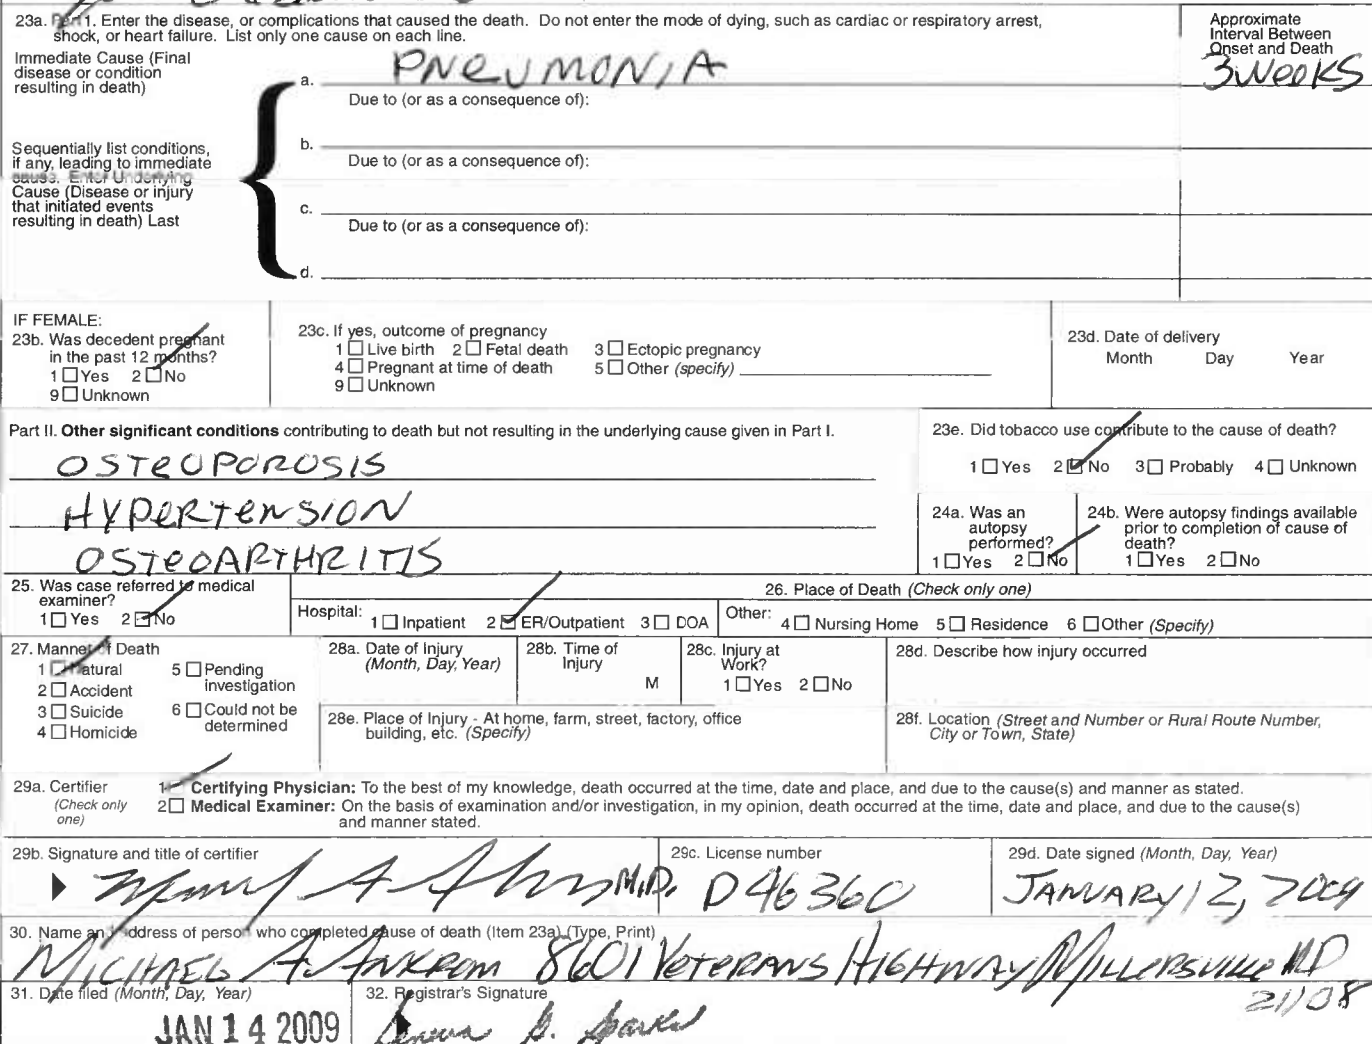 23a. Part 1. Enter the disease, or complications that caused the death. Do not enter the mode of dying, such as cardiac or respiratory arrest,
shock, or heart failure. List only one cause on each line.
Approximate
Interval Between
Onset and Death
Immediate Cause (Final
disease or condition
resulting in death)
a. PNEUMONIA
3 WeeKS
Due to (or as a consequence of):
Sequentially list conditions,
if any, leading to immediate
cause. Enter Underlying
Cause (Disease or injury
that initiated events
resulting in death) Last
b.
Due to (or as a consequence of):
c.
Due to (or as a consequence of):
d.
IF FEMALE:
23b. Was decedent pregnant
in the past 12 months?
1 ☐ Yes 2 ☐ No
9 ☐ Unknown
23c. If yes, outcome of pregnancy
1 ☐ Live birth 2 ☐ Fetal death 3 ☐ Ectopic pregnancy
4 ☐ Pregnant at time of death 5 ☐ Other (specify)
9 ☐ Unknown
23d. Date of delivery
Month Day Year
Part II. Other significant conditions contributing to death but not resulting in the underlying cause given in Part I.
OSTEOPOROSIS
HYPERTENSION
OSTEOARTHRITIS
23e. Did tobacco use contribute to the cause of death?
1 ☐ Yes 2 ☑ No 3 ☐ Probably 4 ☐ Unknown
24a. Was an
autopsy
performed?
1 ☐ Yes 2 ☐ No
24b. Were autopsy findings available
prior to completion of cause of
death?
1 ☐ Yes 2 ☐ No
25. Was case referred to medical
examiner?
1 ☐ Yes 2 ☑ No
26. Place of Death (Check only one)
Hospital: 1 ☐ Inpatient 2 ☑ ER/Outpatient 3 ☐ DOA Other: 4 ☐ Nursing Home 5 ☐ Residence 6 ☐ Other (Specify)
27. Manner of Death
1 ☑ Natural 5 ☐ Pending
investigation
2 ☐ Accident
3 ☐ Suicide 6 ☐ Could not be
determined
4 ☐ Homicide
28a. Date of Injury
(Month, Day, Year)
28b. Time of
Injury
M
28c. Injury at
Work?
1 ☐ Yes 2 ☐ No
28d. Describe how injury occurred
28e. Place of Injury - At home, farm, street, factory, office
building, etc. (Specify)
28f. Location (Street and Number or Rural Route Number,
City or Town, State)
29a. Certifier
(Check only
one)
1 Certifying Physician: To the best of my knowledge, death occurred at the time, date and place, and due to the cause(s) and manner as stated.
2 ☐ Medical Examiner: On the basis of examination and/or investigation, in my opinion, death occurred at the time, date and place, and due to the cause(s)
and manner stated.
29b. Signature and title of certifier
M.D.
29c. License number
D46360
29d. Date signed (Month, Day, Year)
JANUARY 12, 2009
30. Name and address of person who completed cause of death (Item 23a) (Type, Print)
MICHAEL A. ANKROM 8601 VETERANS HIGHWAY MILLERSVILLE MD
21108
31. Date filed (Month, Day, Year)
JAN 14 2009
32. Registrar's Signature